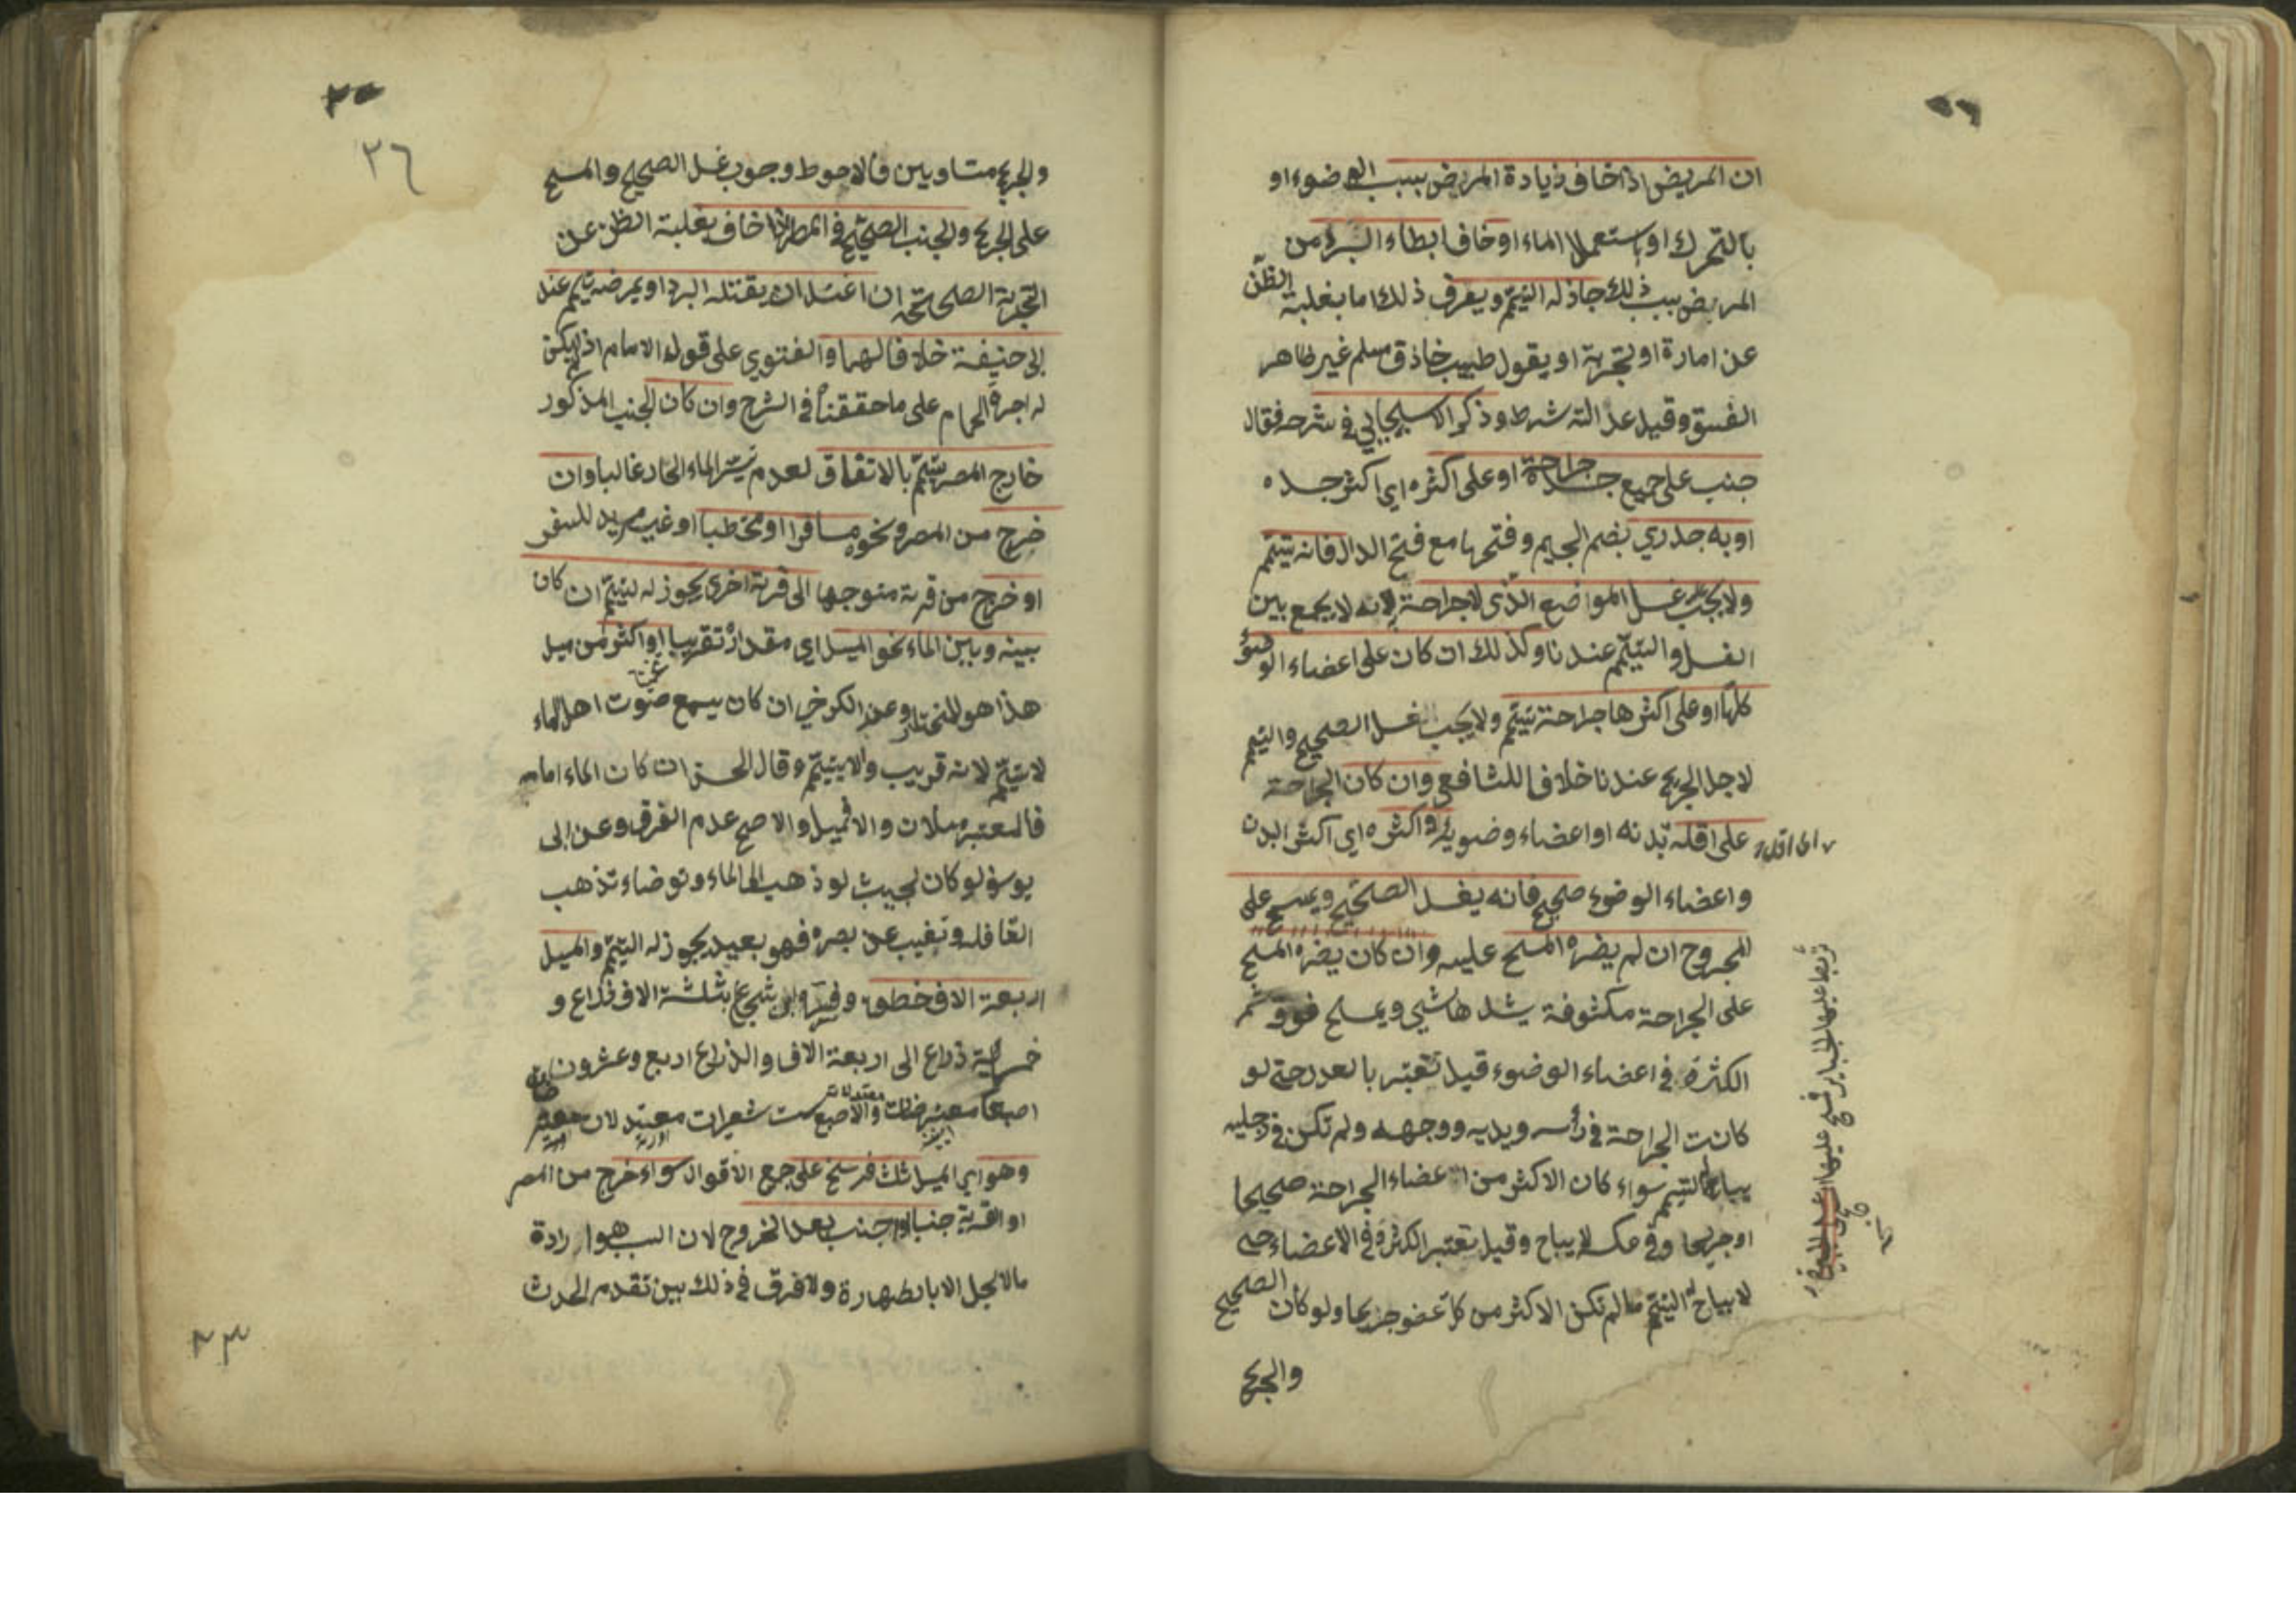 ان المريض اذا خاف زيادة المريض بسبب الوضوء او
بالتحرك او باستعمال الماء او خاف ابطاء البرء من
المريض بسبب ذلك جاز له التيمم ويعرف ذلك اما بغلبة الظن
عن امارة او تجربة او بقول طبيب حاذق مسلم غير ظاهر
الفسق وقيل عدالته شرط وذكر الاسبيجابي في شرحه فقال
جنب على جميع جسده جراحة او على اكثره اي اكثر جسده
او به جدري بضم الجيم وفتحها مع فتح الدال فانه يتيمم
ولا يجب غسل المواضع الذي لا جراحة لانه لا يجمع بين
الغسل والتيمم عندنا وكذلك ان كان على اعضاء الوضوء
كلها او على اكثرها جراحة تيمم ولا يجب الغسل الصحيح والتيمم
لاجل الجريح عندنا خلافا للشافعي وان كان الجراحة
على اقله بدنه او اعضاء وضوئه واكثره اي اكثر البدن
واعضاء الوضوء صحيح فانه يغسل الصحيح ويمسح على
المجروح ان لم يضره المسح عليه وان كان يضره المسح
على الجراحة مكشوفة يشدها بشي ويمسح فوق ثم
الكثرة في اعضاء الوضوء قيل تعتبر بالعدد حتى لو
كانت الجراحة في رأسه ويديه ووجهه ولم تكن في رجليه
يباح له التيمم سواء كان الاكثر من اعضاء الجراحة صحيحا
او جريحا وفي عكسه لا يباح وقيل تعتبر الكثرة في الاعضاء حتى
لا يباح له التيمم ما لم تكن الاكثر من كل عضو جريحا ولو كان الصحيح
والجريح
٣٦
والجريح متساويين فالاحوط وجوب غسل الصحيح والمسح
على الجريح والجنب الصحيح في المصر اذا خاف بغلبة الظن عن
التجربة الصحيحة ان اغتسل ان يقتله البرد او يمرضه تيمم عند
ابي حنيفة خلافا لهما والفتوي على قول الامام اذ لم يكن
له اجرة الحمام على ما حققناه في الشرح وان كان الجنب المذكور
خارج المصر يتيمم بالاتفاق لعدم تيسر الماء الحار غالبا وان
خرج من المصر ونحوه مسافرا او محتطبا او غير مريد للسفر
او خرج من قرية متوجها الى قرية اخرى يجوز له التيمم ان كان
بينه وبين الماء نحو الميل اي مقداره تقريبا او اكثر من ميل
هذا هو المختار وعن الكرخي ان كان يسمع صوت اهل الماء
لا يتيمم لانه قريب والا يتيمم وقال الحسن ان كان الماء امامه
فالمعتبر ميلان والا فميل والاصح عدم الفرق وعن ابي
يوسف لو كان بحيث لو ذهب الى الماء وتوضاء تذهب
القافلة وتغيب عن بصره فهو بعيد يجوز له التيمم والميل
اربعة الاف خطوة وفسره ابن شجاع بثلثة الاف ذراع و
خمسمائة ذراع الى اربعة الاف والذراع اربع وعشرون
اصبعا معترضات والاصبع ست شعيرات
وهو اي الميل ثلث فرسخ على جمع الاقوال سواء خرج من المصر
او القرية جنبا او اجنب بعد الخروج لان السبب هو ارادة
ما لا يحل الا بالطهارة ولا فرق في ذلك بين تقدم الحدث